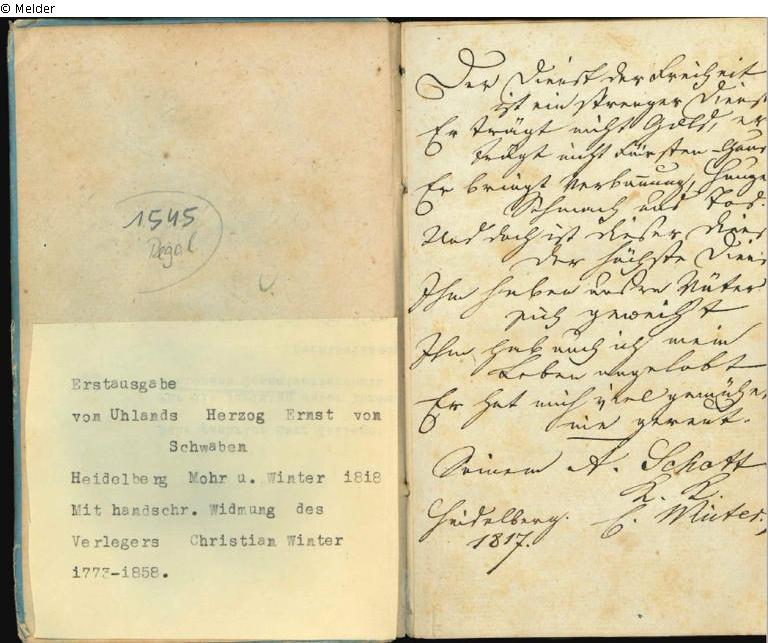 © Melder
1545
Regal
Erstausgabe
von Uhlands Herzog Ernst von
Schwaben
Heidelberg Mohr u. Winter 1818
Mit handschr. Widmung des
Verlegers Christian Winter
1773-1858.
Der Dienst der Freiheit
ist ein strenger Dienst
Er trägt nicht Gold, er
trägt nicht Fürsten-Guns
Er bringt Verbannung, Hunge
Schmach und Tod.
Und doch ist dieser Diens
der höchste Diens
Ihm haben unsre Väter
sich geweiht
Ihm hab auch ich mein
Leben angelobt
Er hat mich viel gemühet,
nie gereut.
Seinem A. Schott
C. Winter,
Heidelberg.
1817.